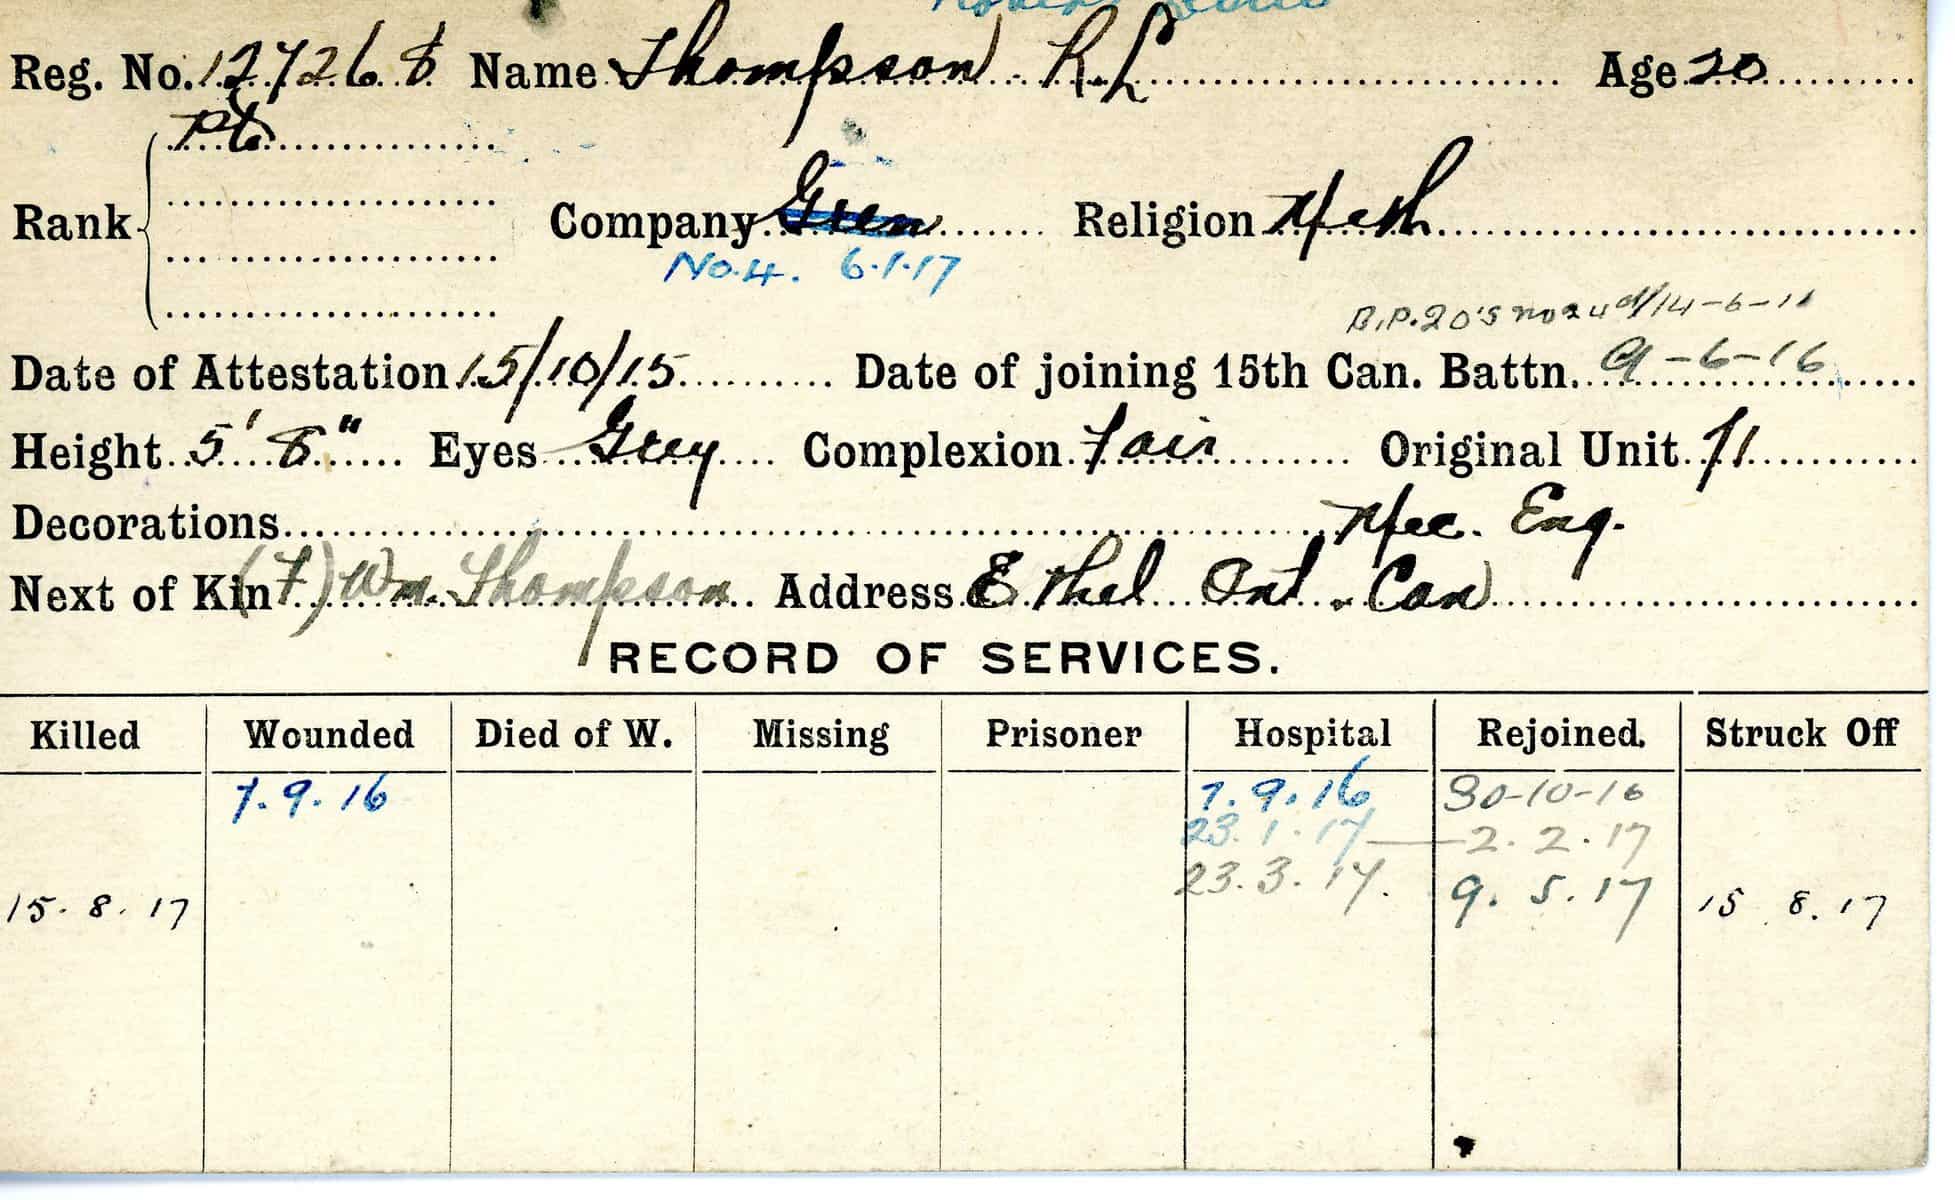 Robert
Reg. No. 127268 Name Thompson R.L Age 20
Pte
Rank Company Gren Religion Meth
No. 4. 6.1.17
B.P. 20's no 24 d/14-6-16
Date of Attestation 15/10/15 Date of joining 15th Can. Battn. 9-6-16
Height 5' 8" Eyes Grey Complexion Fair Original Unit 71
Decorations Mec. Eng.
Next of Kin (F) Wm. Thompson Address Ethel Ont. Can
RECORD OF SERVICES.
Killed Wounded Died of W. Missing Prisoner Hospital Rejoined. Struck Off
7.9.16 7.9.16 30-10-16
23.1.17 — 2.2.17
23.3.17. 9.5.17
15.8.17 15 8.17